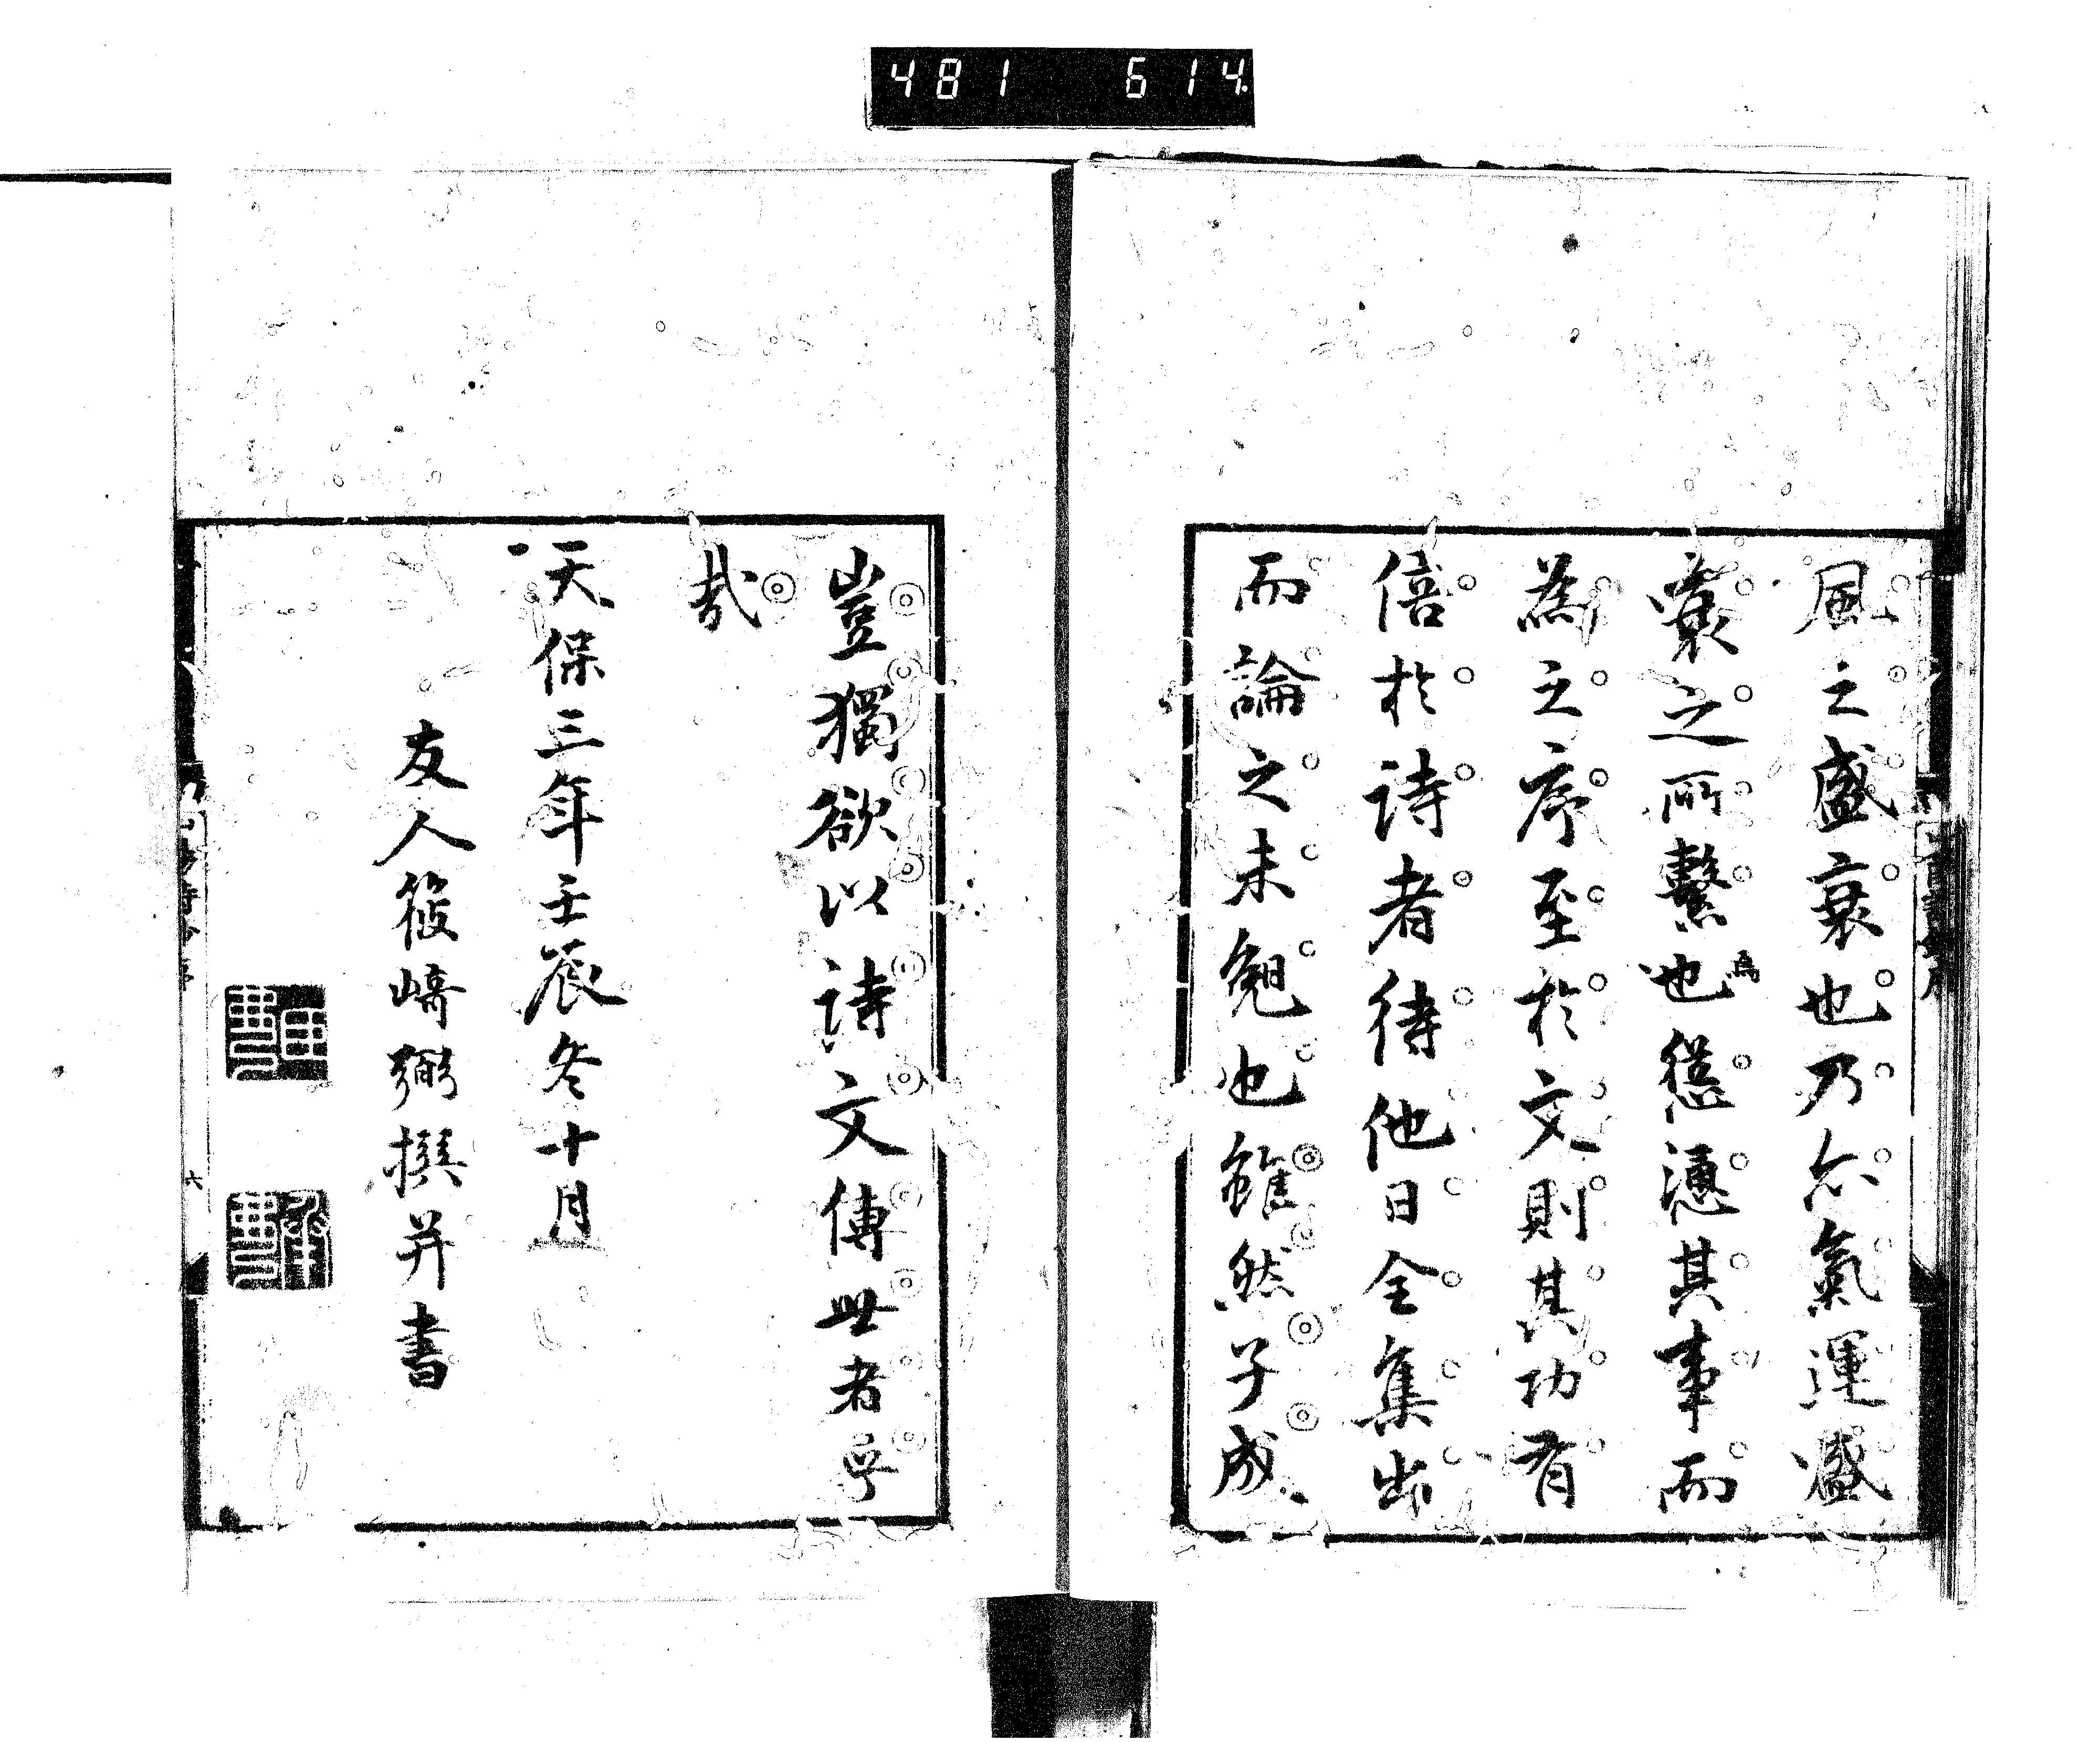 481 614.
風之盛衰也乃亦氣運盛
衰之所繫也為慫慂其事而
為之序至於文則其功有
倍於詩者待他日全集出
而論之未晚也雖然子成
豈獨欲以詩文傳世者乎
哉
天保三年壬辰冬十月
友人筱崎弼撰并書
六